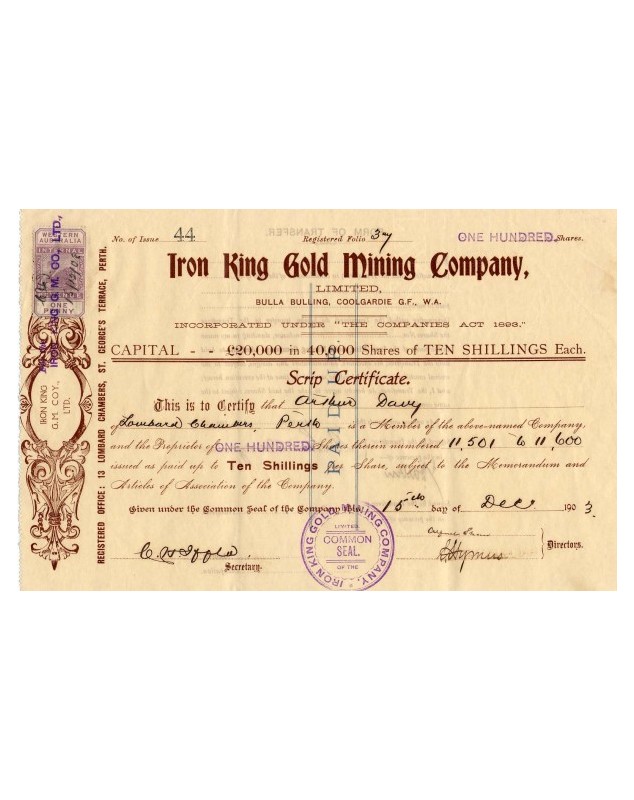 FORM OF TRANSFER.
No. of Issue 44 Registered Folio 37 ONE HUNDRED Shares.
Iron King Gold Mining Company,
LIMITED,
BULLA BULLING, COOLGARDIE G.F., W.A.
INCORPORATED UNDER "THE COMPANIES ACT 1893."
CAPITAL - - £20,000 in 40,000 Shares of TEN SHILLINGS Each.
Scrip Certificate.
This is to Certify that Arthur Davy
of Lombard Chambers, Perth is a Member of the above-named Company,
and the Proprietor of ONE HUNDRED Shares therein numbered 11,501 to 11,600
issued as paid up to Ten Shillings per Share, subject to the Memorandum and
Articles of Association of the Company.
Given under the Common Seal of the Company this 15th day of Dec 1903
Directors.
Secretary.
IRON KING GOLD MINING COMPANY,
LIMITED
COMMON
SEAL.
OF THE
PAID
WESTERN
AUSTRALIA
INTERNAL
ONE
PENNY
IRON KING G. M. CO., LTD.,
IRON KING
G.M. COY.,
LTD.
REGISTERED OFFICE: 13 LOMBARD CHAMBERS, ST. GEORGE'S TERRACE, PERTH.